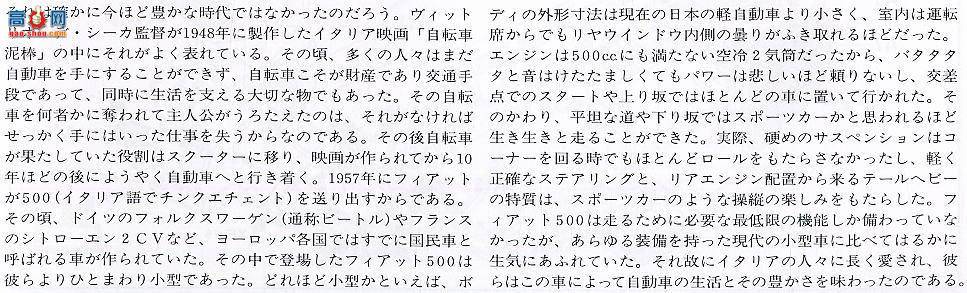 それは確かに今ほど豊かな時代ではなかったのだろう。ヴィット
・シーカ監督が1948年に製作したイタリア映画「自転車
泥棒」の中にそれがよく表れている。その頃、多くの人々はまだ
自動車を手にすることができず、自転車こそが財産であり交通手
段であって、同時に生活を支える大切な物でもあった。その自転
車を何者かに奪われて主人公がうろたえたのは、それがなければ
せっかく手にはいった仕事を失うからなのである。その後自転車
が果たしていた役割はスクーターに移り、映画が作られてから10
年ほどの後にようやく自動車へと行き着く。1957年にフィアット
が500(イタリア語でチンクエチェント)を送り出すからである。
その頃、ドイツのフォルクスワーゲン(通称ビートル)やフランス
のシトローエン2CVなど、ヨーロッパ各国ではすでに国民車と
呼ばれる車が作られていた。その中で登場したフィアット500は
彼らよりひとまわり小型であった。どれほど小型かといえば、ボ
ディの外形寸法は現在の日本の軽自動車より小さく、室内は運転
席からでもリヤウインドウ内側の曇りがふき取れるほどだった。
エンジンは500ccにも満たない空冷2気筒だったから、バタタタ
タと音はけたたましくてもパワーは悲しいほど頼りないし、交差
点でのスタートや上り坂ではほとんどの車に置いて行かれた。そ
のかわり、平坦な道や下り坂ではスポーツカーかと思われるほど
生き生きと走ることができた。実際、硬めのサスペンションはコ
ーナーを回る時でもほとんどロールをもたらさなかったし、軽く
正確なステアリングと、リアエンジン配置から来るテールヘビー
の特質は、スポーツカーのような操縦の楽しみをもたらした。フ
ィアット500は走るために必要な最低限の機能しか備わっていな
かったが、あらゆる装備を持った現代の小型車に比べてはるかに
生気にあふれていた。それ故にイタリアの人々に長く愛され、彼
らはこの車によって自動車の生活とその豊かさを味わったのである。